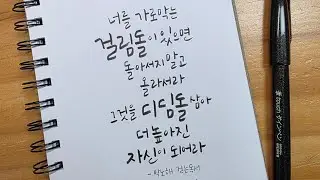 너를 가로막는
걸림돌이 있으면
돌아서지말고
올라서라
그것을 디딤돌 삼아
더 높아진
자신이 되어라